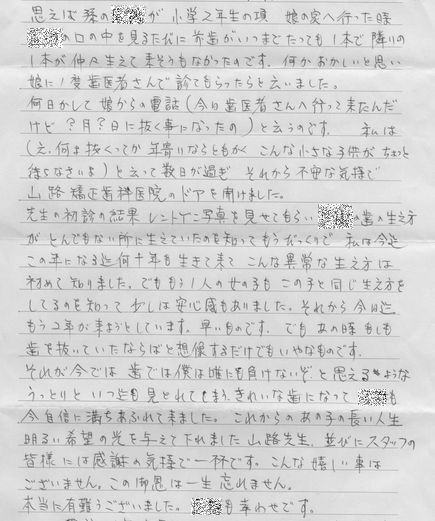 思えば孫の が小学2年生の頃 娘の家へ行った時
の口の中を見るたびに前歯がいつまでたっても1本で隣りの
1本が仲々生えて来そうもなかったのです。何かおかしいと思い
娘に1度歯医者さんで診てもらったらと云いました。
何日かして娘から電話(今日歯医者さんへ行って来たんだ
けど ?月?日に抜く事になったの)と云うのです。 私は
(え、何よ抜くってか 年寄りならともかく こんな小さな子供が ちょっと
待ちなさいよ)と云って数日が過ぎ それから不安な気持で
山路矯正歯科医院のドアを開けました。
先生の初診の結果 レントゲン写真を見せてもらい の歯の生え方
がとんでもない所に生えていたのを知ってもうびっくりで 私は今迄
この年になる迄何十年も生きて来て こんな異常な生え方は
初めて知りました。でももう1人の女の子も この子と同じ生え方を
してるのを知って 少しは安心感もありました。それから今日迄
もう2年が来ようとしています。早いものです。でも あの時もしも
歯を抜いていたならばと想像するだけでもいやなものです。
それが今では 歯では僕は誰にも負けないぞ と思えるような
うっとりと いつ迄も見とれてしまう、きれいな歯になって も
今自信に満ちあふれて来ました。これからのあの子の長い人生
明るい希望の光を与えて下れました山路先生、並びにスタッフの
皆様には感謝の気持で一杯です。こんな嬉しい事は
ございません。この御恩は一生忘れません。
本当に有難うございました。 も幸わせです。